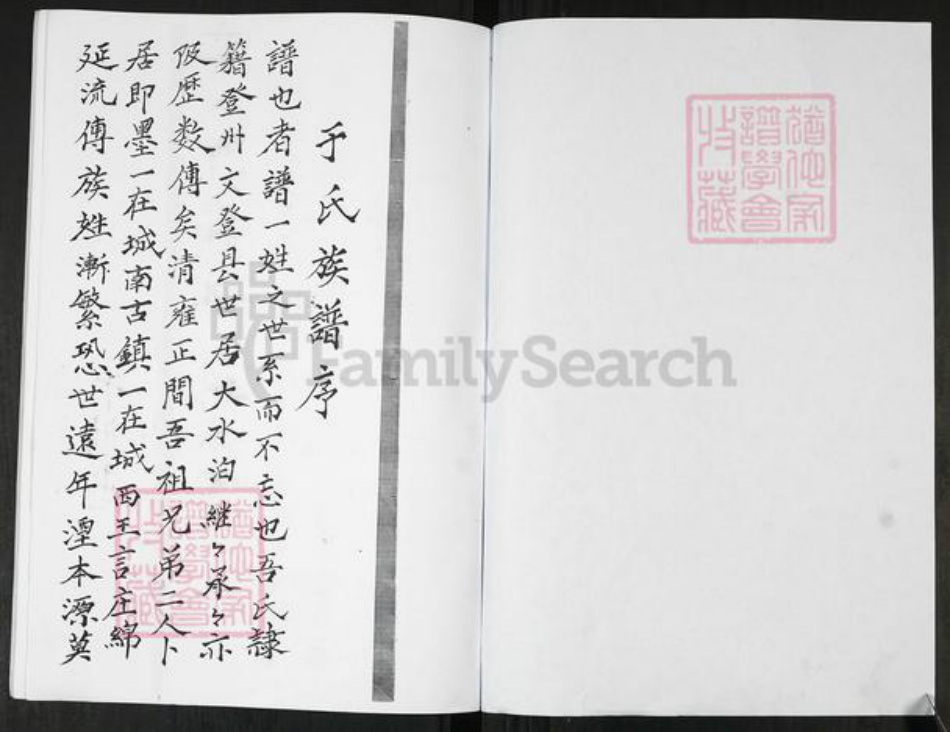 于氏族譜序
譜也者譜一姓之世系而不忘也吾氏隸
籍登州文登县世居大水泊継々承々亦
伋歷数傳矣清雍正間吾祖兄弟二人卜
居即墨一在城南古鎮一在城西王言庄綿
延流傳族姓漸繁恐世遠年湮本源莫
FamilySearch
譜學會
收藏